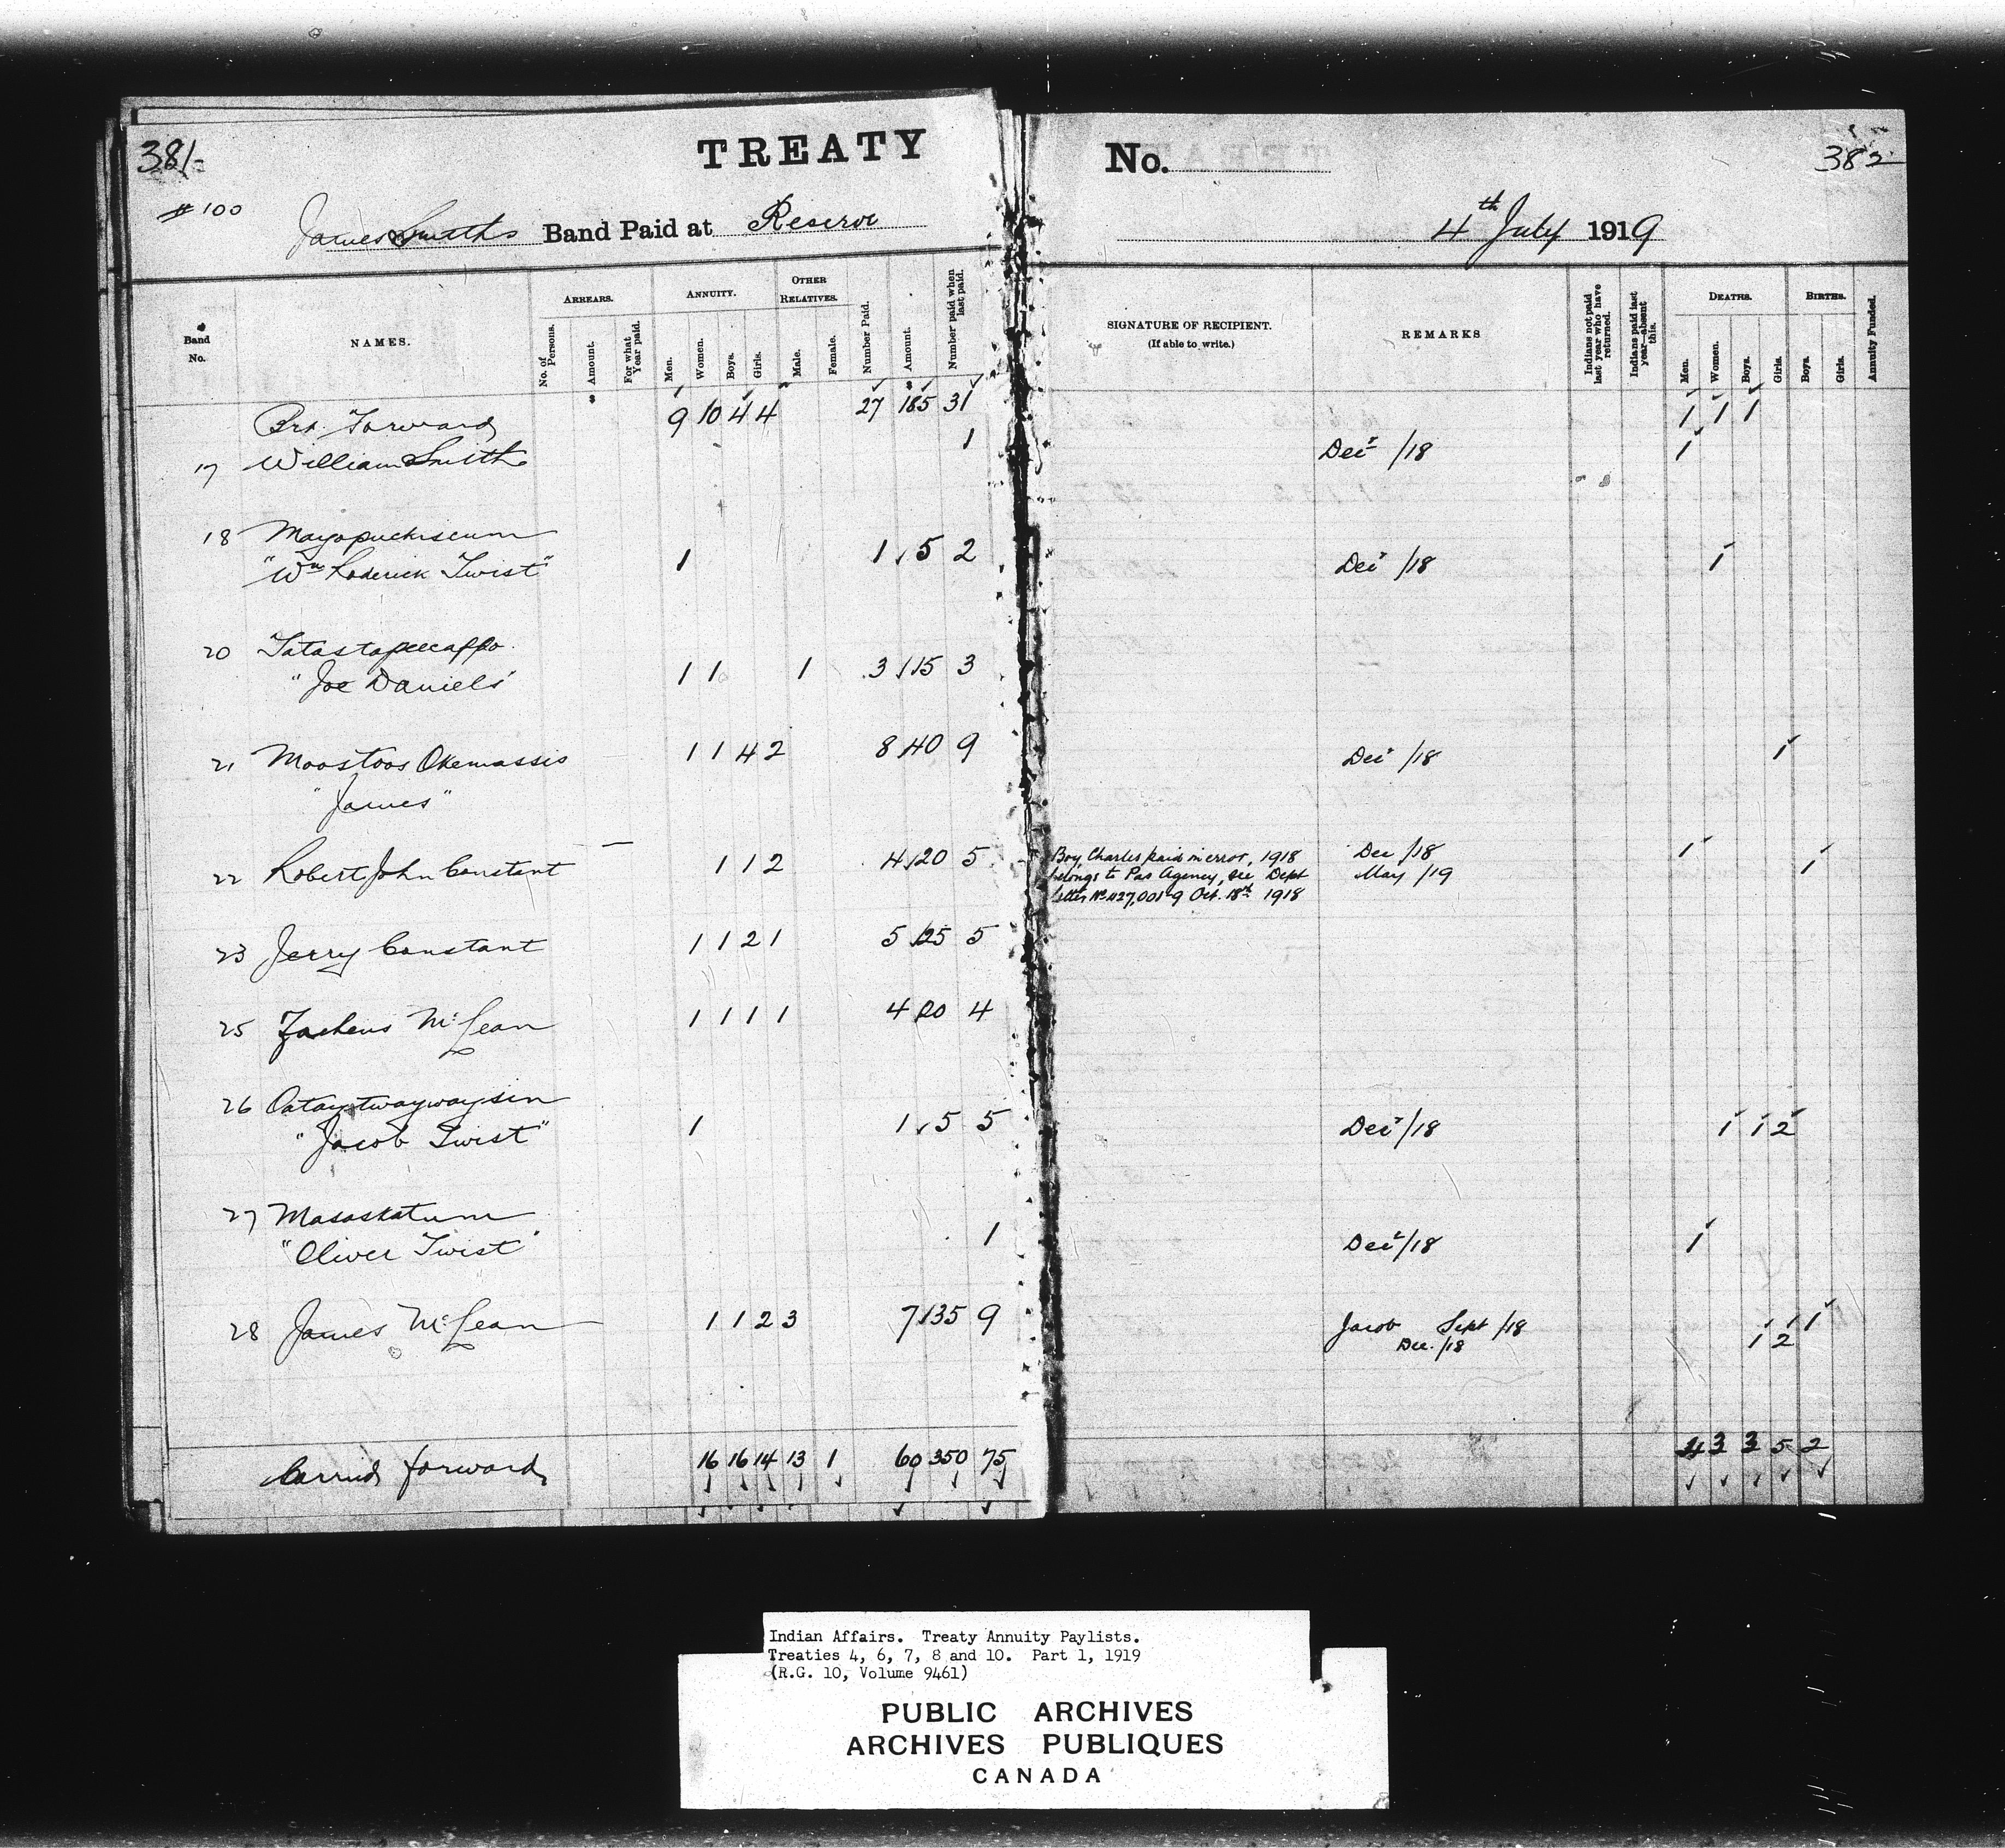 381-
TREATY
No.
382
# 100
James Smith's Band Paid at Reserve
4th July 1919
Band No.
NAMES.
ARREARS.
No. of Persons.
Amount.
For what Year paid.
ANNUITY.
Men.
Women.
Boys.
Girls.
OTHER RELATIVES.
Male.
Female.
Number Paid.
Amount.
Number paid when last paid.
SIGNATURE OF RECIPIENT.
(If able to write.)
REMARKS
Indians not paid last year who have returned.
Indians paid last year—absent this.
DEATHS.
Men.
Women.
Boys.
Girls.
BIRTHS.
Boys.
Girls.
Annuity Funded.
Brt. Forward 9 10 4 4 27 185 31 1 1 1
17 William Smith 1 Dec /18 1
18 Mayopuckiseum
"Wm Roderick Twist" 1 1 5 2 Dec /18 1
20 Tatastapeecappo
"Joe Daniels" 1 1 1 3 15 3
21 Moostoos Okemassis 1 1 4 2 8 40 9 Dec /18 1
"James"
22 Robert John Constant 1 1 2 4 20 5 Boy Charles paid in error, 1918 Dec /18 1
belongs to Pas Agency, see Dept May /19 1
letter No 427,001-9 Oct. 18th 1918
23 Jerry Constant 1 1 2 1 5 25 5
25 Zacheus McLean 1 1 1 1 4 20 4
26 Oataytwaywaysin
"Jacob Twist" 1 1 5 5 Dec /18 1 1 2
27 Masaskatum
"Oliver Twist" 1 Dec /18 1
28 James McLean 1 1 2 3 7 35 9 Jacob Sept /18 1
Dec. /18 1 2
Carried forward 16 16 14 13 1 60 350 75 4 3 3 5 2
Indian Affairs. Treaty Annuity Paylists.
Treaties 4, 6, 7, 8 and 10. Part 1, 1919
(R.G. 10, Volume 9461)
PUBLIC ARCHIVES
ARCHIVES PUBLIQUES
CANADA